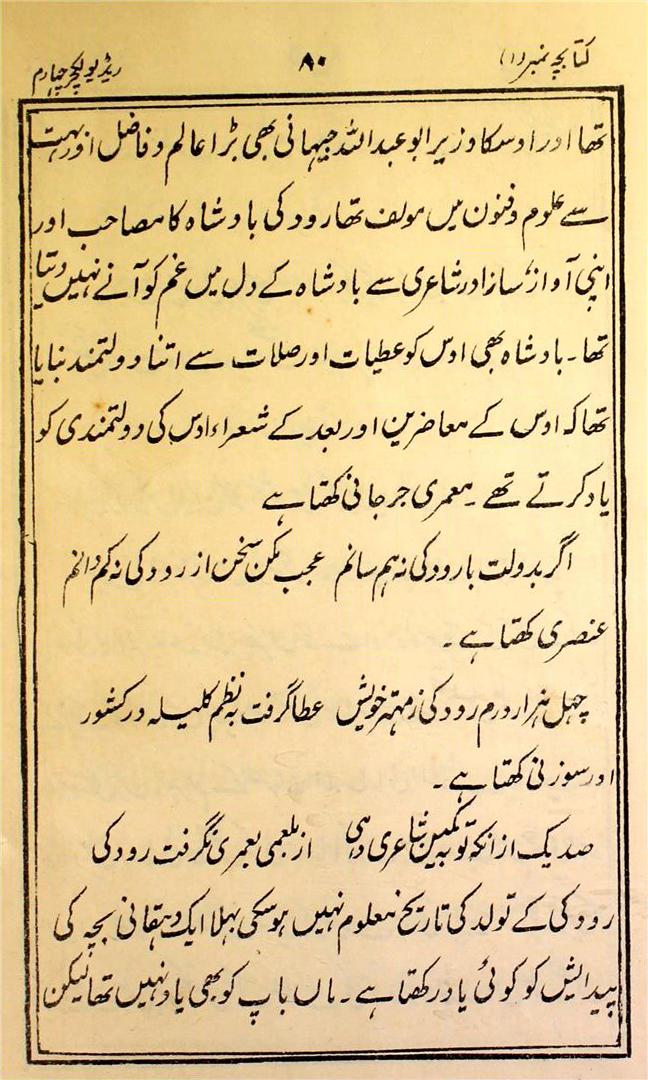 کتابچہ نمبر (۱)
۸۰
ریڈیو لکچر چہارم
تھا اور اوسکا وزیر ابو عبداللہ جیہانی بھی بڑا عالم و فاضل اور بہت
سے علوم و فنون میں مولف تھا رودکی بادشاہ کا مصاحب اور
اپنی آواز، ساز اور شاعری سے بادشاہ کے دل میں غم کو آنے نہیں دیتا
تھا۔ بادشاہ بھی اوس کو عطیات اور صلات سے اتنا دولتمند بنایا
تھا کہ اوس کے معاضرین اور بعد کے شعراء اوس کی دولتمندی کو
یاد کرتے تھے۔ معمری جرجانی کھتا ہے
اگر بدولت با رودکی نہ ہم سانم عجب مکن سخن از رودکی نہ کم دانم
عنصری کھتا ہے۔
چہل ہزار درم رودکی زمہتر خویش عطا گرفت بہ نظم کلیلہ در کشور
اور سوزنی کھتا ہے۔
صد یک از انکہ تو بہ کمین شاعری دہی از بلعمی بعمری نگرفت رودکی
رودکی کے تولد کی تاریخ معلوم نہیں ہوسکی بہلا ایک دہقانی بچہ کی
پیدایش کو کوئی یاد رکھتا ہے۔ ماں باپ کو بھی یاد نہیں تھا لیکن